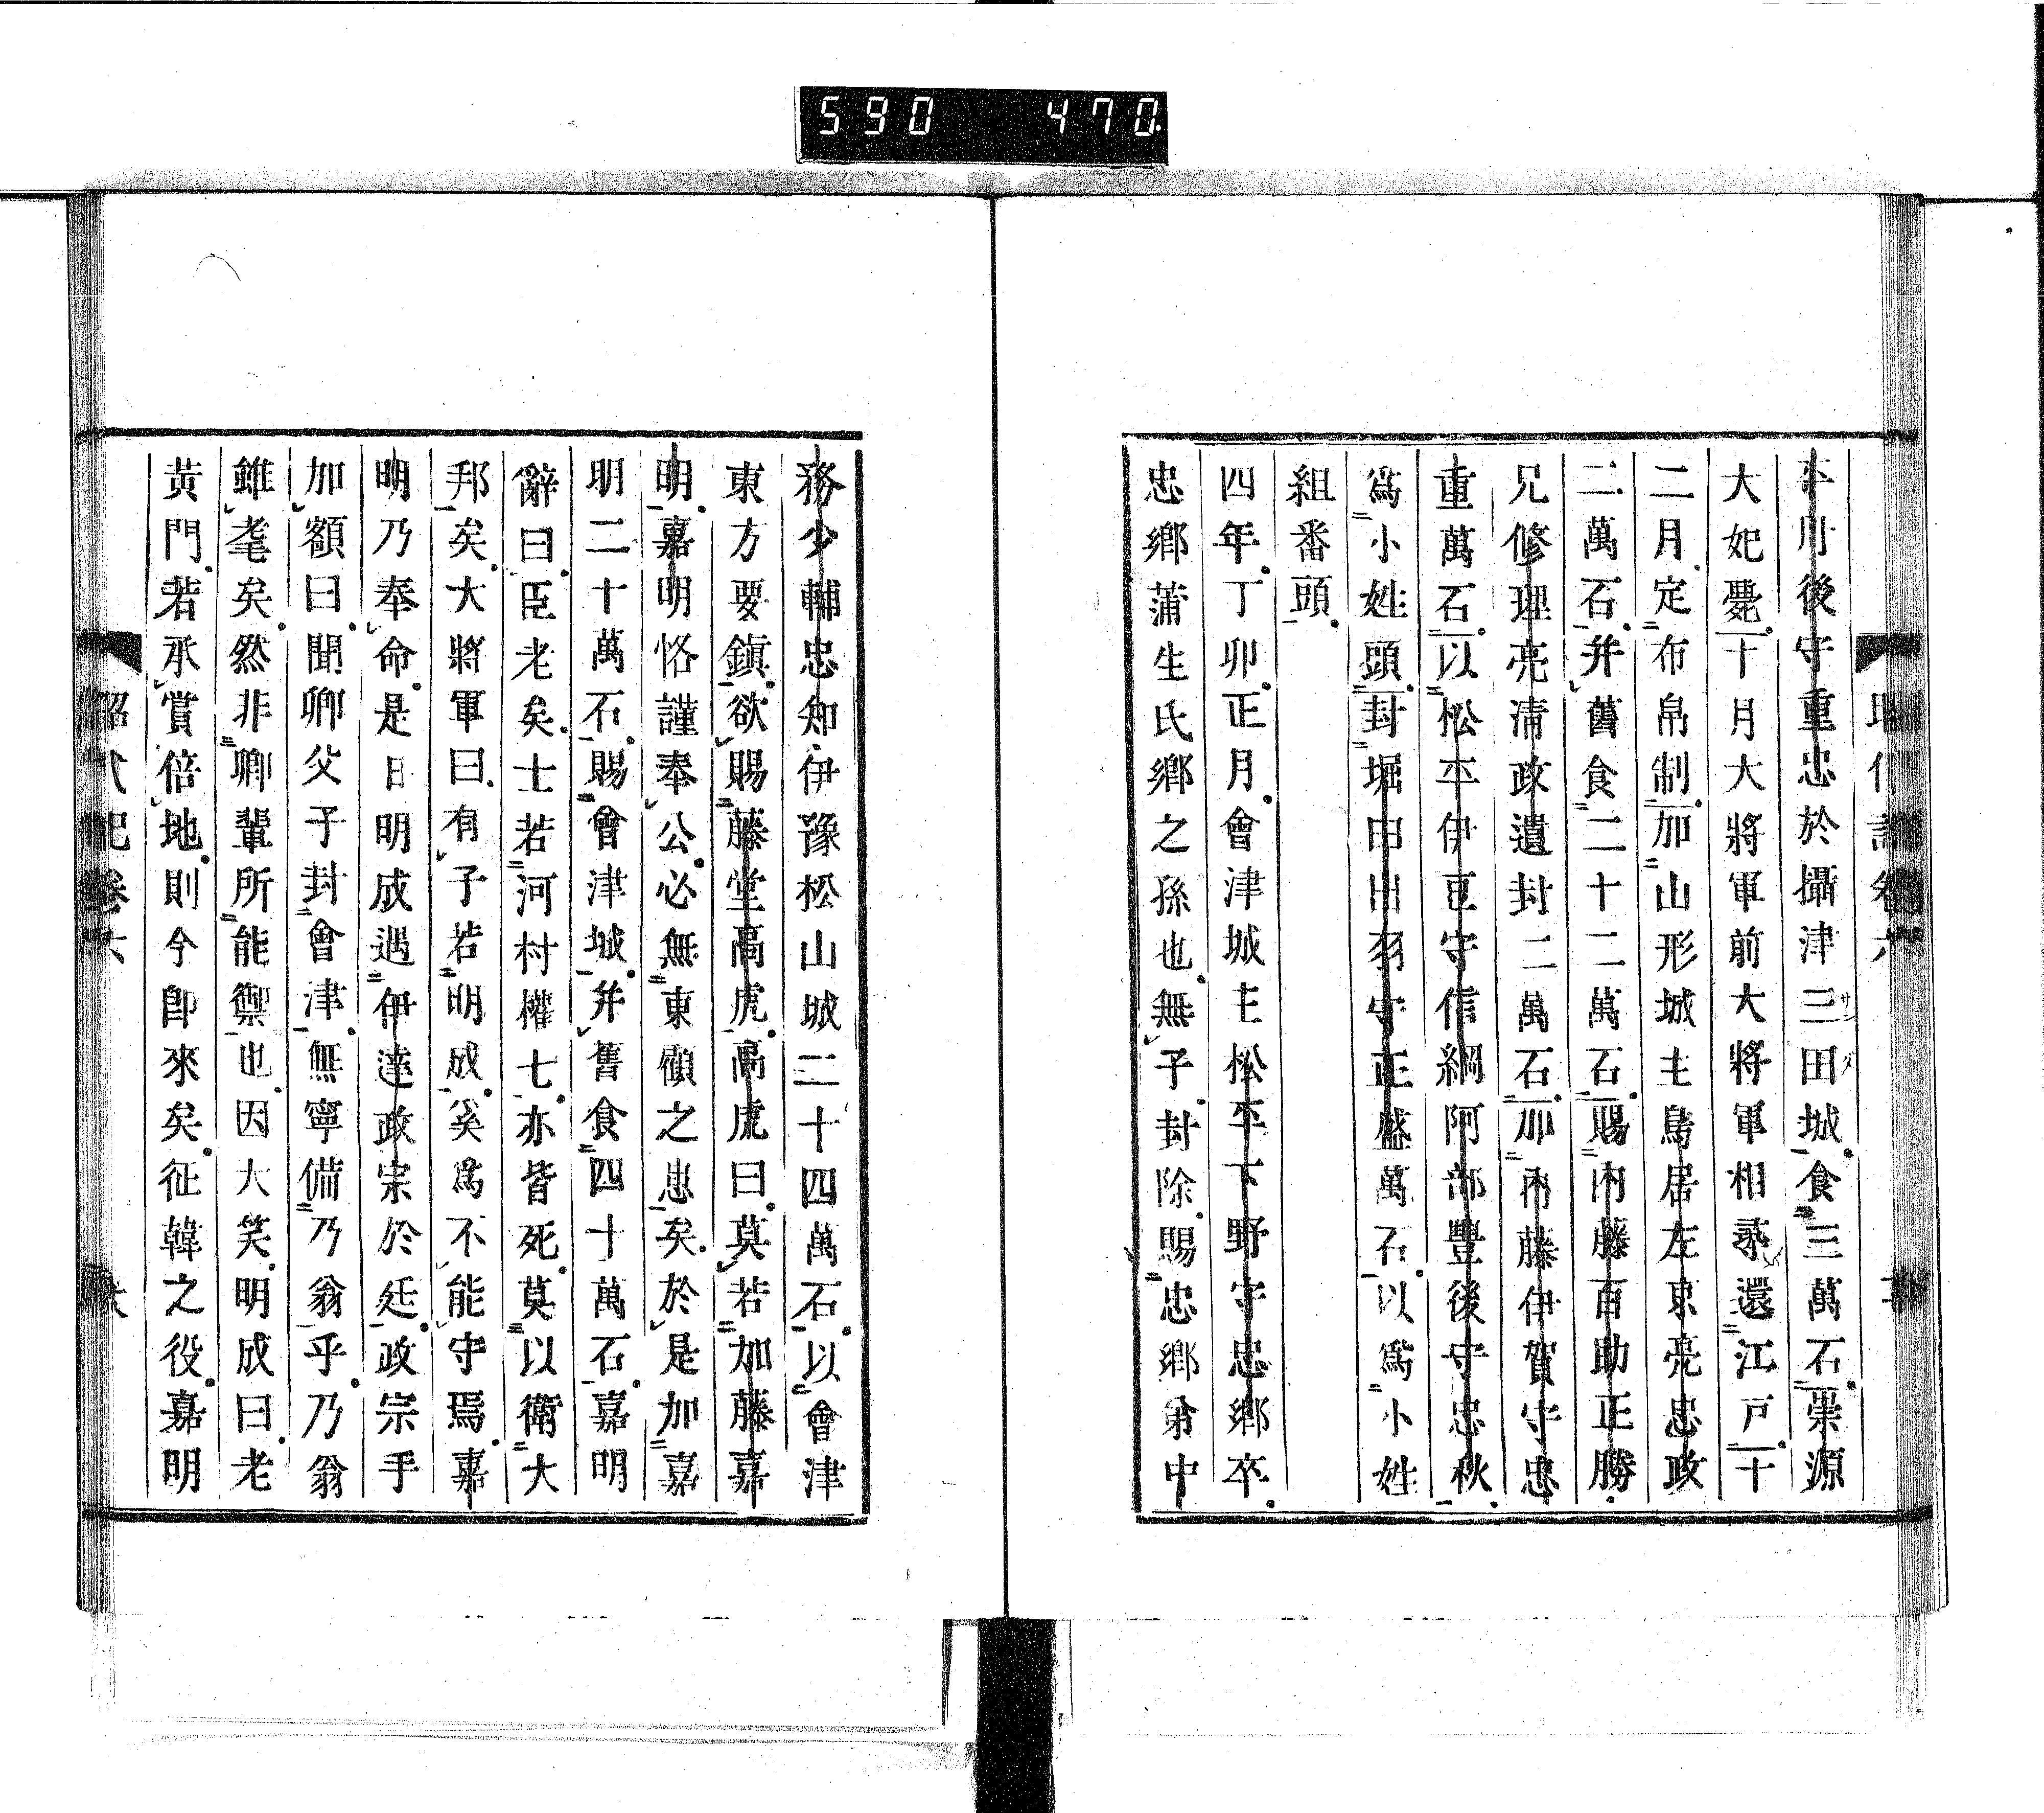 590 470
本月後守重忠於攝津三田城食三萬石崇源
大妃薨十月大將軍前大將軍相尋還江戸十
二月定布帛制加山形城主鳥居左京亮忠政
二萬石并舊食二十二萬石賜內藤百助正勝
兄修理亮淸政遺封二萬石加內藤伊賀守忠
重萬石以松平伊豆守信綱阿部豐後守忠秋
爲小姓頭封堀田出羽守正盛萬石以爲小姓
組番頭
四年丁卯正月會津城主松平下野守忠鄕卒
忠鄕蒲生氏鄕之孫也無子封除賜忠鄕弟中
務少輔忠知伊豫松山城二十四萬石以會津
東方要鎭欲賜藤堂高虎高虎曰莫若加藤嘉
明嘉明恪謹奉公必無東顧之患矣於是加嘉
明二十萬石賜會津城并舊食四十萬石嘉明
辭曰臣老矣士若河村權七亦皆死莫以衞大
邦矣大將軍曰有子若明成奚爲不能守焉嘉
明乃奉命是日明成遇伊達政宗於廷政宗手
加額曰聞卿父子封會津無寧備乃翁乎乃翁
雖耄矣然非卿輩所能禦也因大笑明成曰老
黃門若承賞倍地則今卽來矣征韓之役嘉明
紹代記卷六